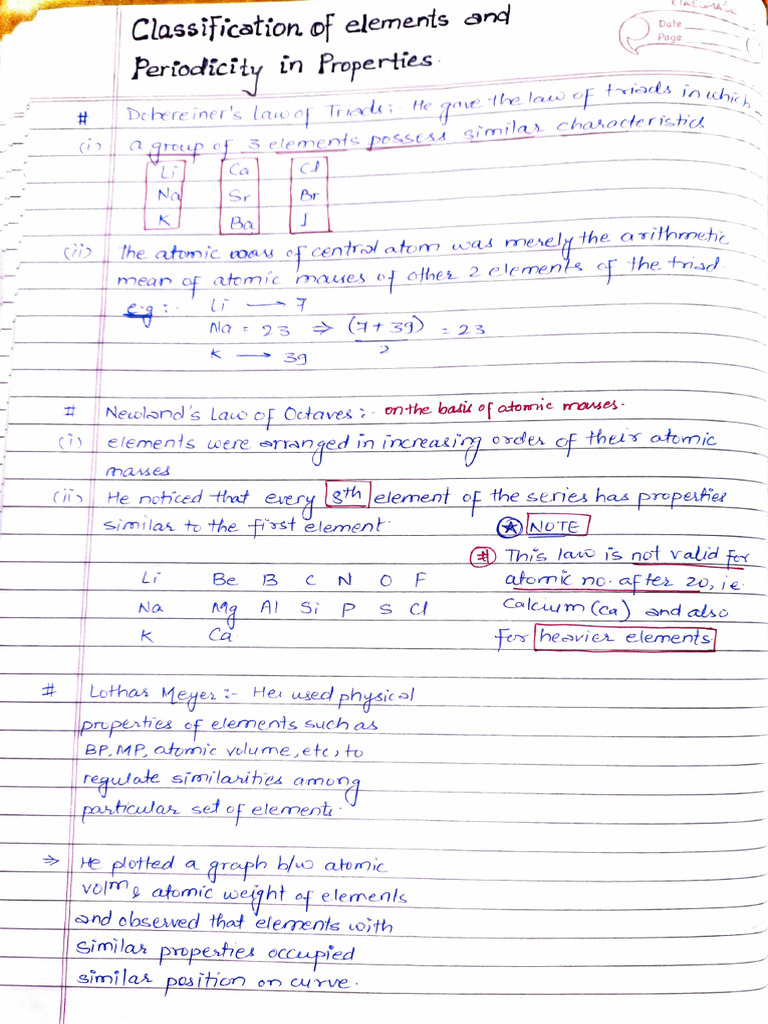 Classification of elements and
Periodicity in Properties.
Date
Page
# Dobereiner's Law of Triads:- He gave the law of triads in which
(i) a group of 3 elements possess similar characteristics
Li Ca Cl
Na Sr Br
K Ba I
(ii) the atomic mass of central atom was merely the arithmetic
mean of atomic masses of other 2 elements of the triad.
e.g :- Li → 7
Na = 23 ⇒ (7+39)/2 = 23
K → 39
# Newland's Law of Octaves :- on the basis of atomic masses.
(i) elements were arranged in increasing order of their atomic
masses
(ii) He noticed that every 8th element of the series has properties
similar to the first element.
★ NOTE
# This law is not valid for
atomic no. after 20, i.e.
Calcium (Ca) and also
for heavier elements
Li Be B C N O F
Na Mg Al Si P S Cl
K Ca
# Lothar Meyer :- He used physical
properties of elements such as
BP, MP, atomic volume, etc, to
regulate similarities among
particular set of elements.
⇒ He plotted a graph b/w atomic
volm & atomic weight of elements
and observed that elements with
similar properties occupied
similar position on curve.